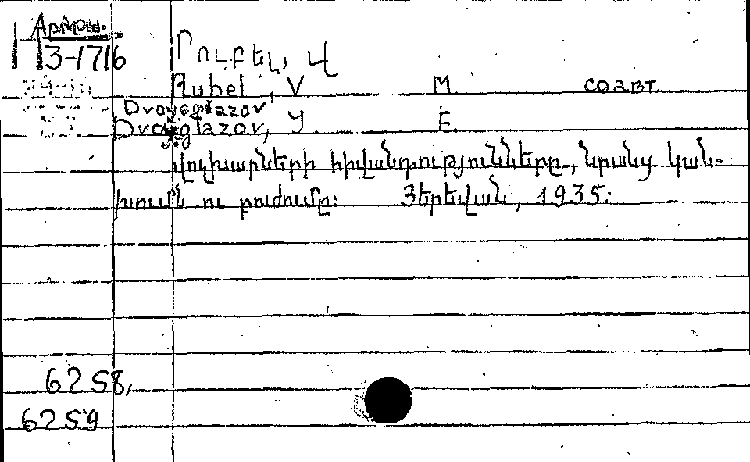 Армян.
3-1716
Րուբել, Վ
Rubel, V. M. соавт.
Dvoyeglazov,
Dvoyeglazov, Y. E.
Ոչխարների հիվանդությունները, նրանց կան-
խումն ու բուժումը: Յերեվան, 1935:
6258,
6259